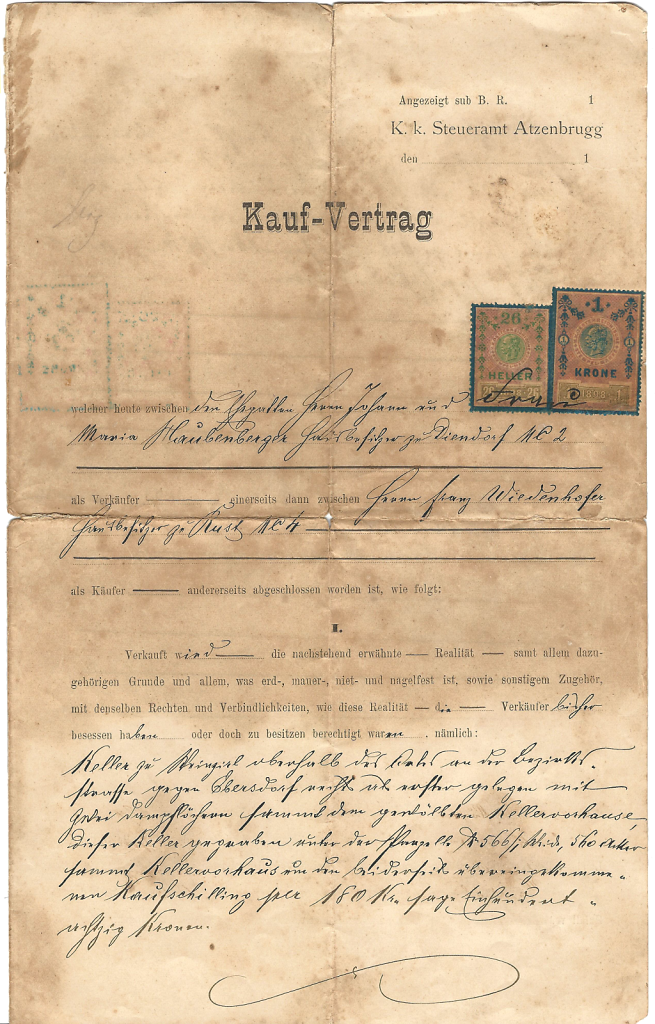 Angezeigt sub B. R. 1
K. k. Steueramt Atzenbrugg
den 1
Kauf-Vertrag
26
HELLER
1
KRONE
1898
welcher heute zwischen den Ehegatten Herrn Johann und Frau
Maria Haubenberger Hausbesitzer zu Diendorf No 2
als Verkäufer einerseits dann zwischen Herrn Franz Wiedenhofer
Hausbesitzer zu Rust No 4
als Käufer andererseits abgeschlossen worden ist, wie folgt:
I.
Verkauft wird die nachstehend erwähnte Realität samt allem dazu-
gehörigen Grunde und allem, was erd-, mauer-, niet- und nagelfest ist, sowie sonstigem Zugehör,
mit denselben Rechten und Verbindlichkeiten, wie diese Realität die Verkäufer bisher
besessen haben oder doch zu besitzen berechtigt waren. nämlich:
Keller zu Weinzirl oberhalb des Ortes an der Bezirks-
strasse gegen Ebersdorf rechts als erster gelegen mit
zwei Dampflöchern sammt dem gewölbten Kellervorhause,
dieser Keller gegraben unter der Parzelle No 566/1 560 Acker
sammt Kellervorhaus um den beiderseits übereingekomme-
nen Kaufschilling per 180 Kr. sage Einhundert-
achtzig Kronen.